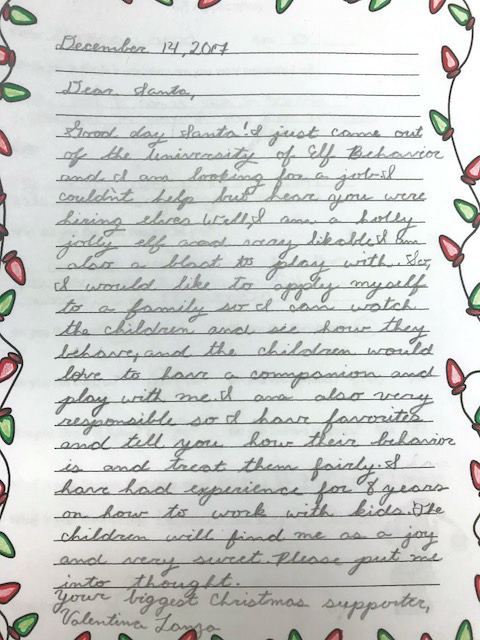 December 14, 2017
Dear Santa,
Good day Santa! I just came out
of the University of Elf Behavior
and I am looking for a job. I
couldn't help but hear you were
hiring elves. Well, I am a holly
jolly elf and very likable. I am
also a blast to play with. So,
I would like to apply myself
to a family so I can watch
the children and see how they
behave, and the children would
love to have a companion and
play with me. I am also very
responsible so I have favorites
and tell you how their behavior
is and treat them fairly. I
have had experience for 8 years
on how to work with kids. The
children will find me as a joy
and very sweet. Please put me
into thought.
Your biggest Christmas supporter,
Valentina Lanza